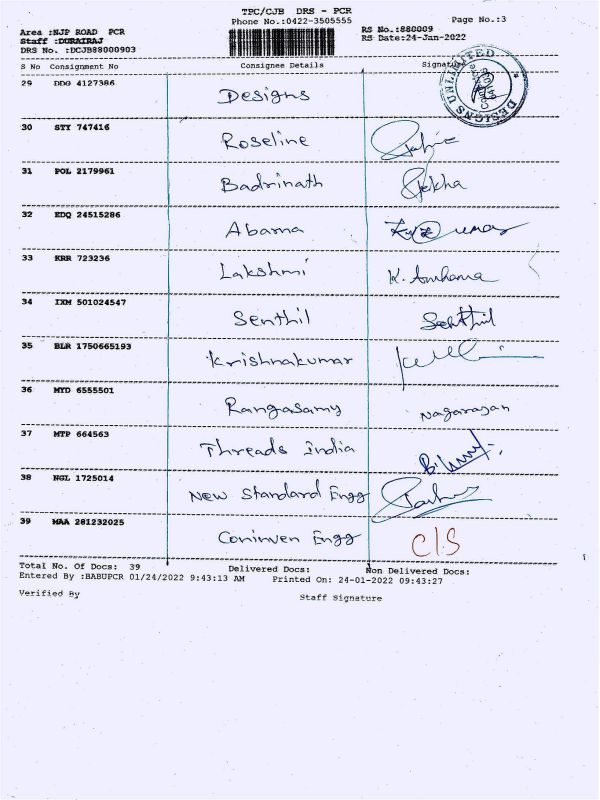 TPC/CJB DRS - PCR
Phone No.:0422-3505555 Page No.:3
Area :NJP ROAD PCR RS No.:880009
Staff :DURAIRAJ RS Date:24-Jan-2022
DRS No. :DCJB88000903
S No Consignment No Consignee Details Signature
DESIGNS UNLIMITED
29 DDG 4127386 Designs
30 STY 747416 Roseline
31 POL 2179961 Badrinath
32 EDQ 24515286 Abarna
33 KRR 723236 Lakshmi
34 IXM 501024547 Senthil Senthil
35 BLR 1750665193 Krishnakumar
36 MYD 6555501 Rangasamy Nagarajan
37 MTP 664563 Threads India
38 NGL 1725014 New Standard Engg
39 MAA 281232025 Coninven Engg C/S
Total No. Of Docs: 39 Delivered Docs: Non Delivered Docs:
Entered By :BABUPCR 01/24/2022 9:43:13 AM Printed On: 24-01-2022 09:43:27
Verified By Staff Signature